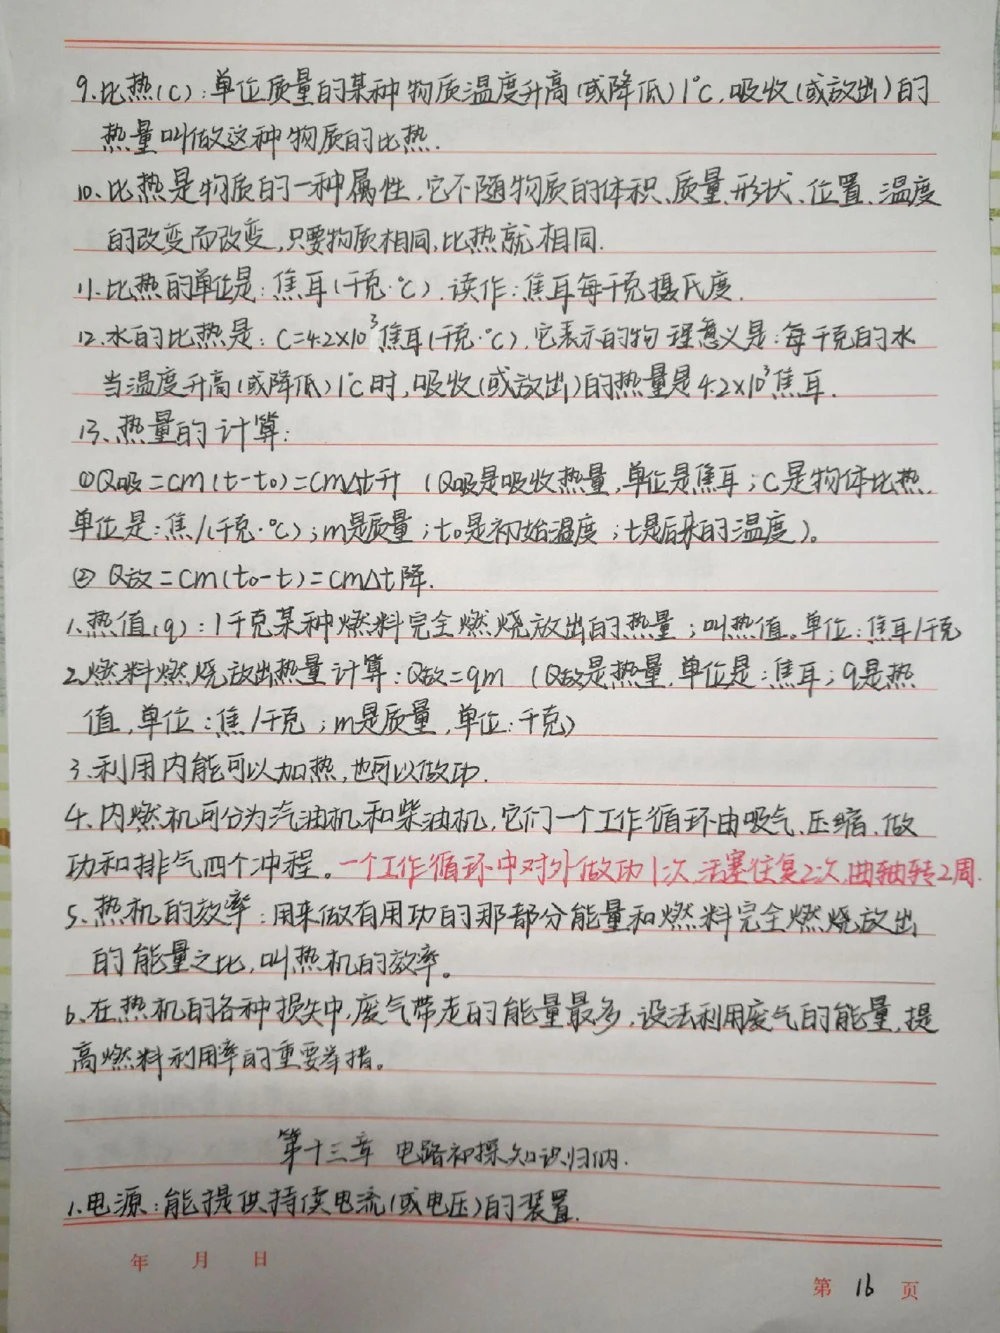 9、比热(C):单位质量的某种物质温度升高(或降低)1℃,吸收(或放出)的
热量叫做这种物质的比热.
10、比热是物质的一种属性,它不随物质的体积、质量、形状、位置、温度
的改变而改变,只要物质相同,比热就相同.
11、比热的单位是:焦耳(千克·℃),读作:焦耳每千克摄氏度.
12、水的比热是:C=4.2×10³焦耳(千克·℃),它表示的物理意义是:每千克的水
当温度升高(或降低)1℃时,吸收(或放出)的热量是4.2×10³焦耳.
13、热量的计算:
①Q吸=cm(t-t₀)=cm△t升 (Q吸是吸收热量,单位是焦耳;C是物体比热,
单位是:焦/(千克·℃);m是质量;t₀是初始温度;t是后来的温度)。
② Q放=cm(t₀-t)=cm△t降.
1、热值(q):1千克某种燃料完全燃烧放出的热量;叫热值。单位:焦耳/千克
2、燃料燃烧放出热量计算:Q放=qm (Q放是热量,单位是:焦耳;q是热
值,单位:焦/千克;m是质量,单位:千克)
3、利用内能可以加热,也可以做功.
4、内燃机可分为汽油机和柴油机,它们一个工作循环由吸气、压缩、做
功和排气四个冲程。一个工作循环中对外做功1次,活塞往复2次,曲轴转2周.
5、热机的效率:用来做有用功的那部分能量和燃料完全燃烧放出
的能量之比,叫热机的效率。
6、在热机的各种损失中,废气带走的能量最多,设法利用废气的能量,提
高燃料利用率的重要举措。
第十三章 电路初探知识归纳.
1、电源:能提供持续电流(或电压)的装置.
年 月 日
第 16 页